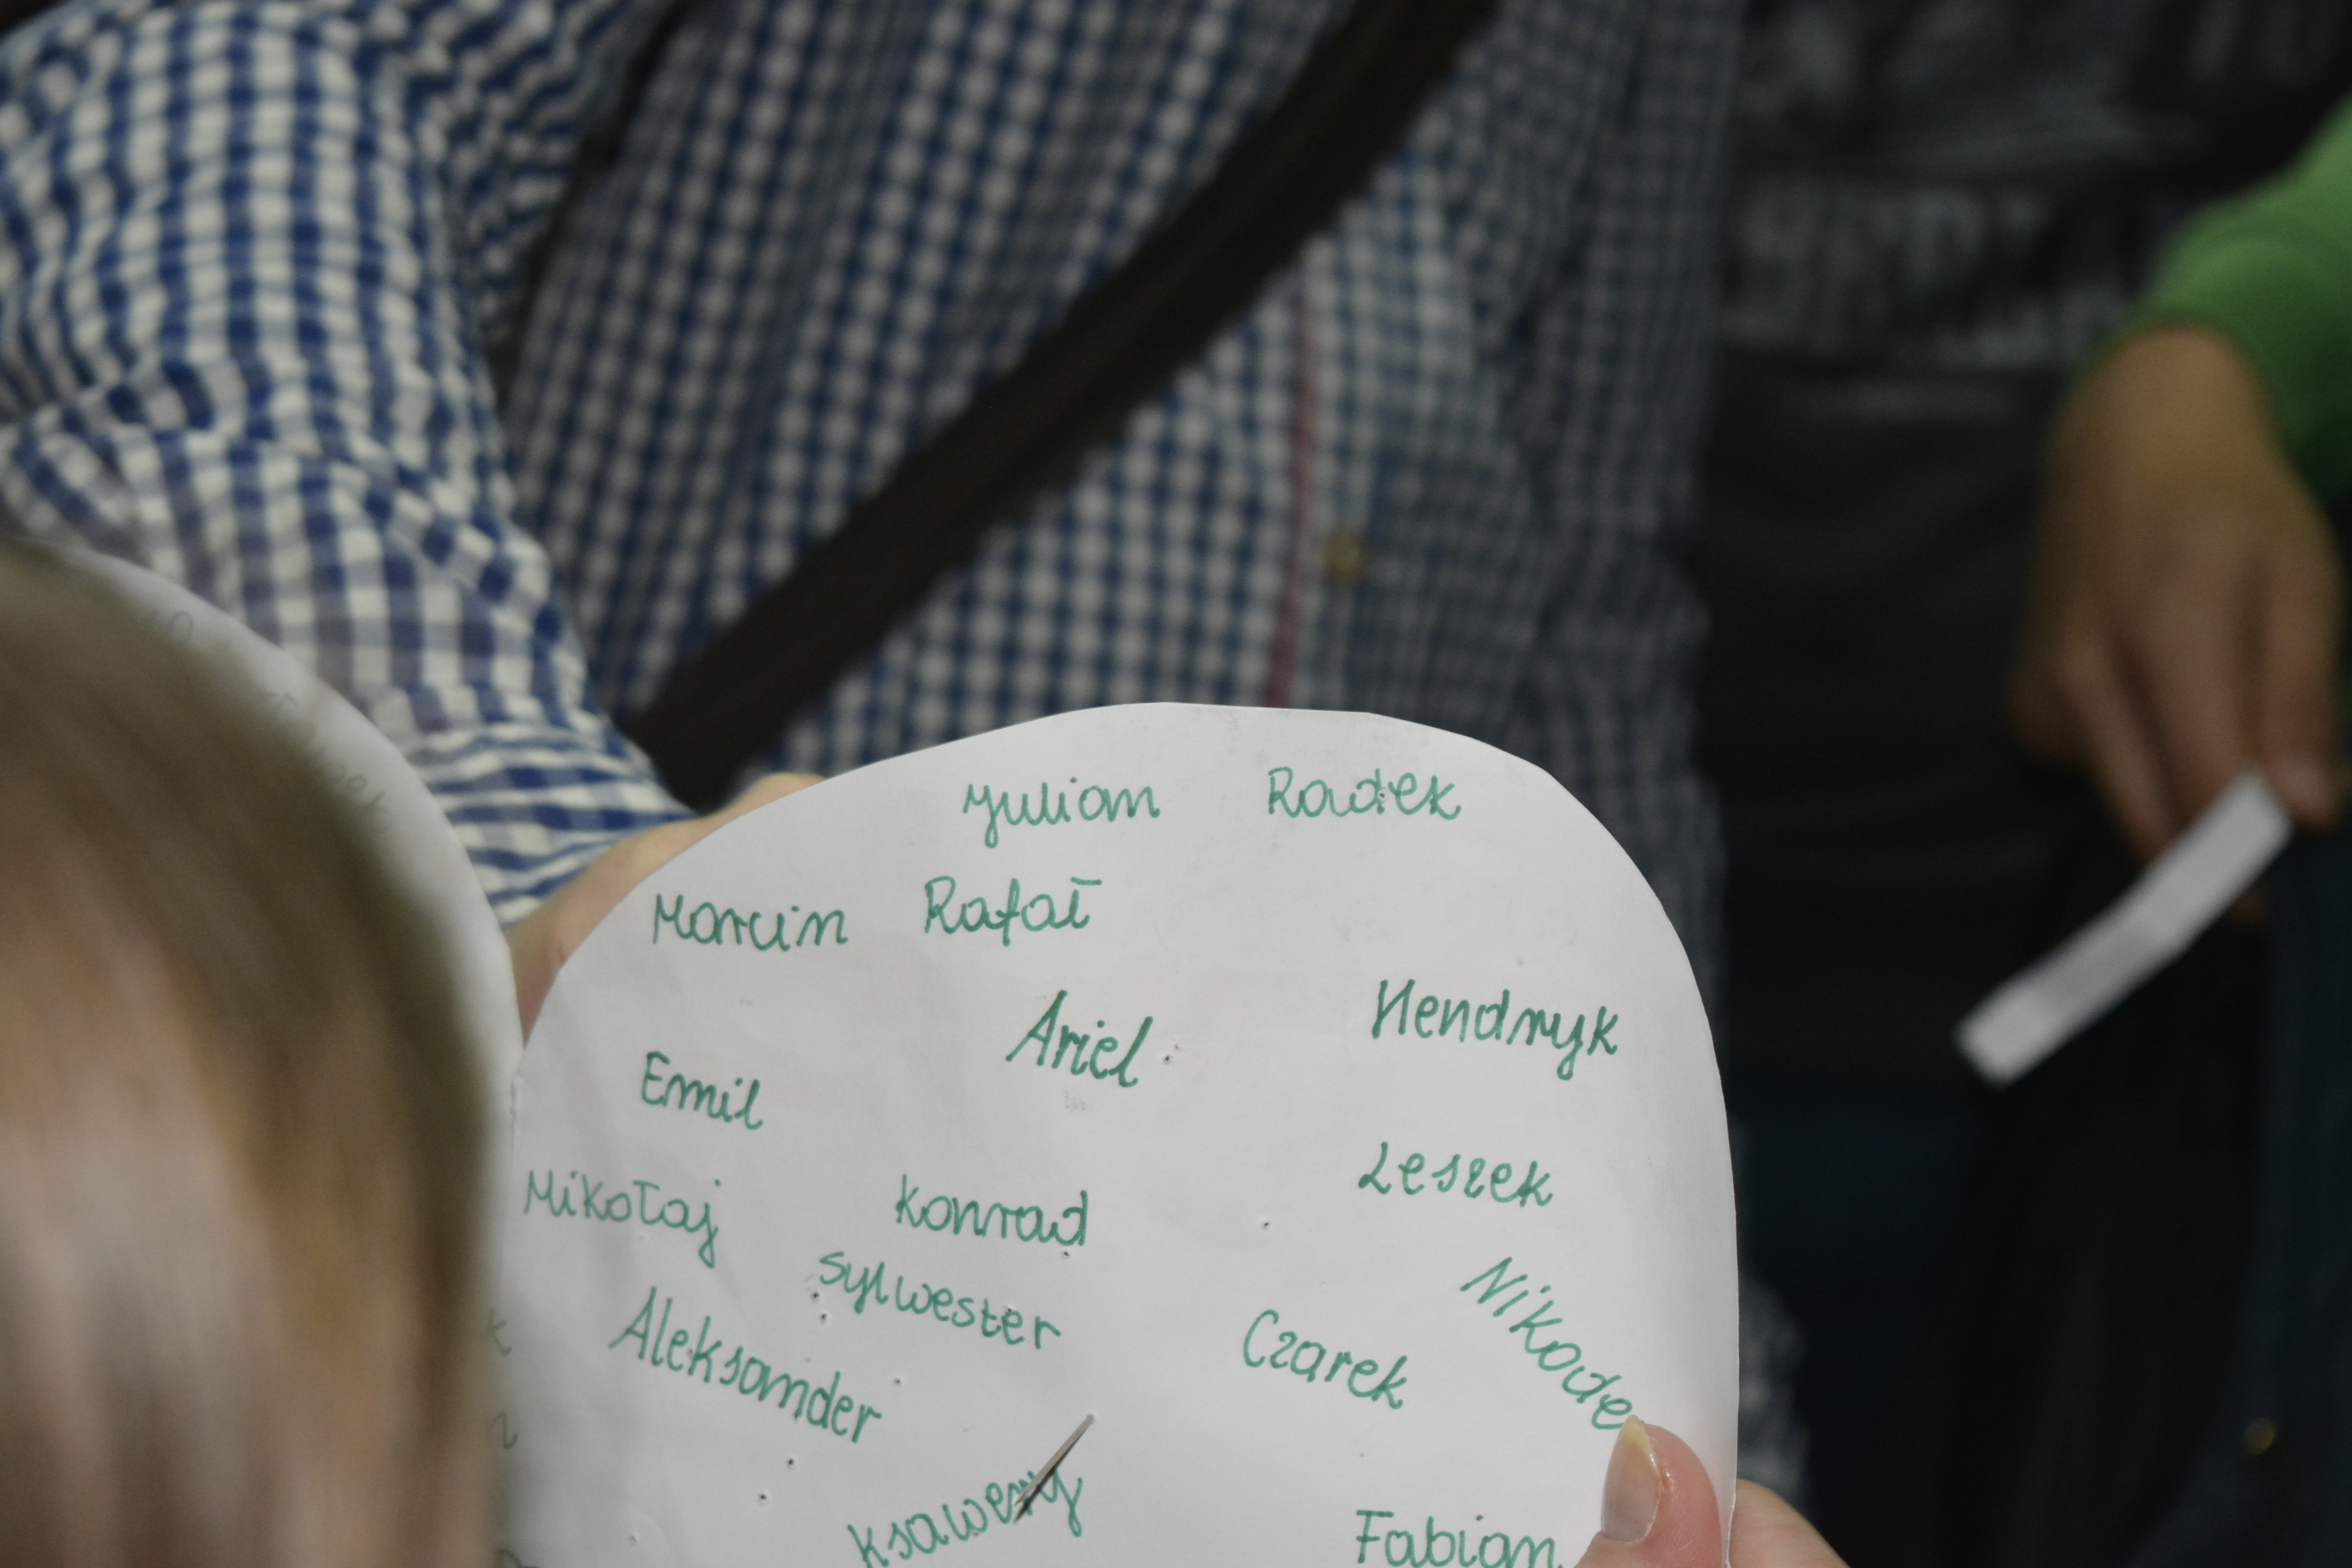 Julian Radek
Marcin Rafał
Ariel Hendryk
Emil
Leszek
Mikołaj Konrad
Sylwester
Nikode
Aleksander Czarek
Ksawery
Fabian